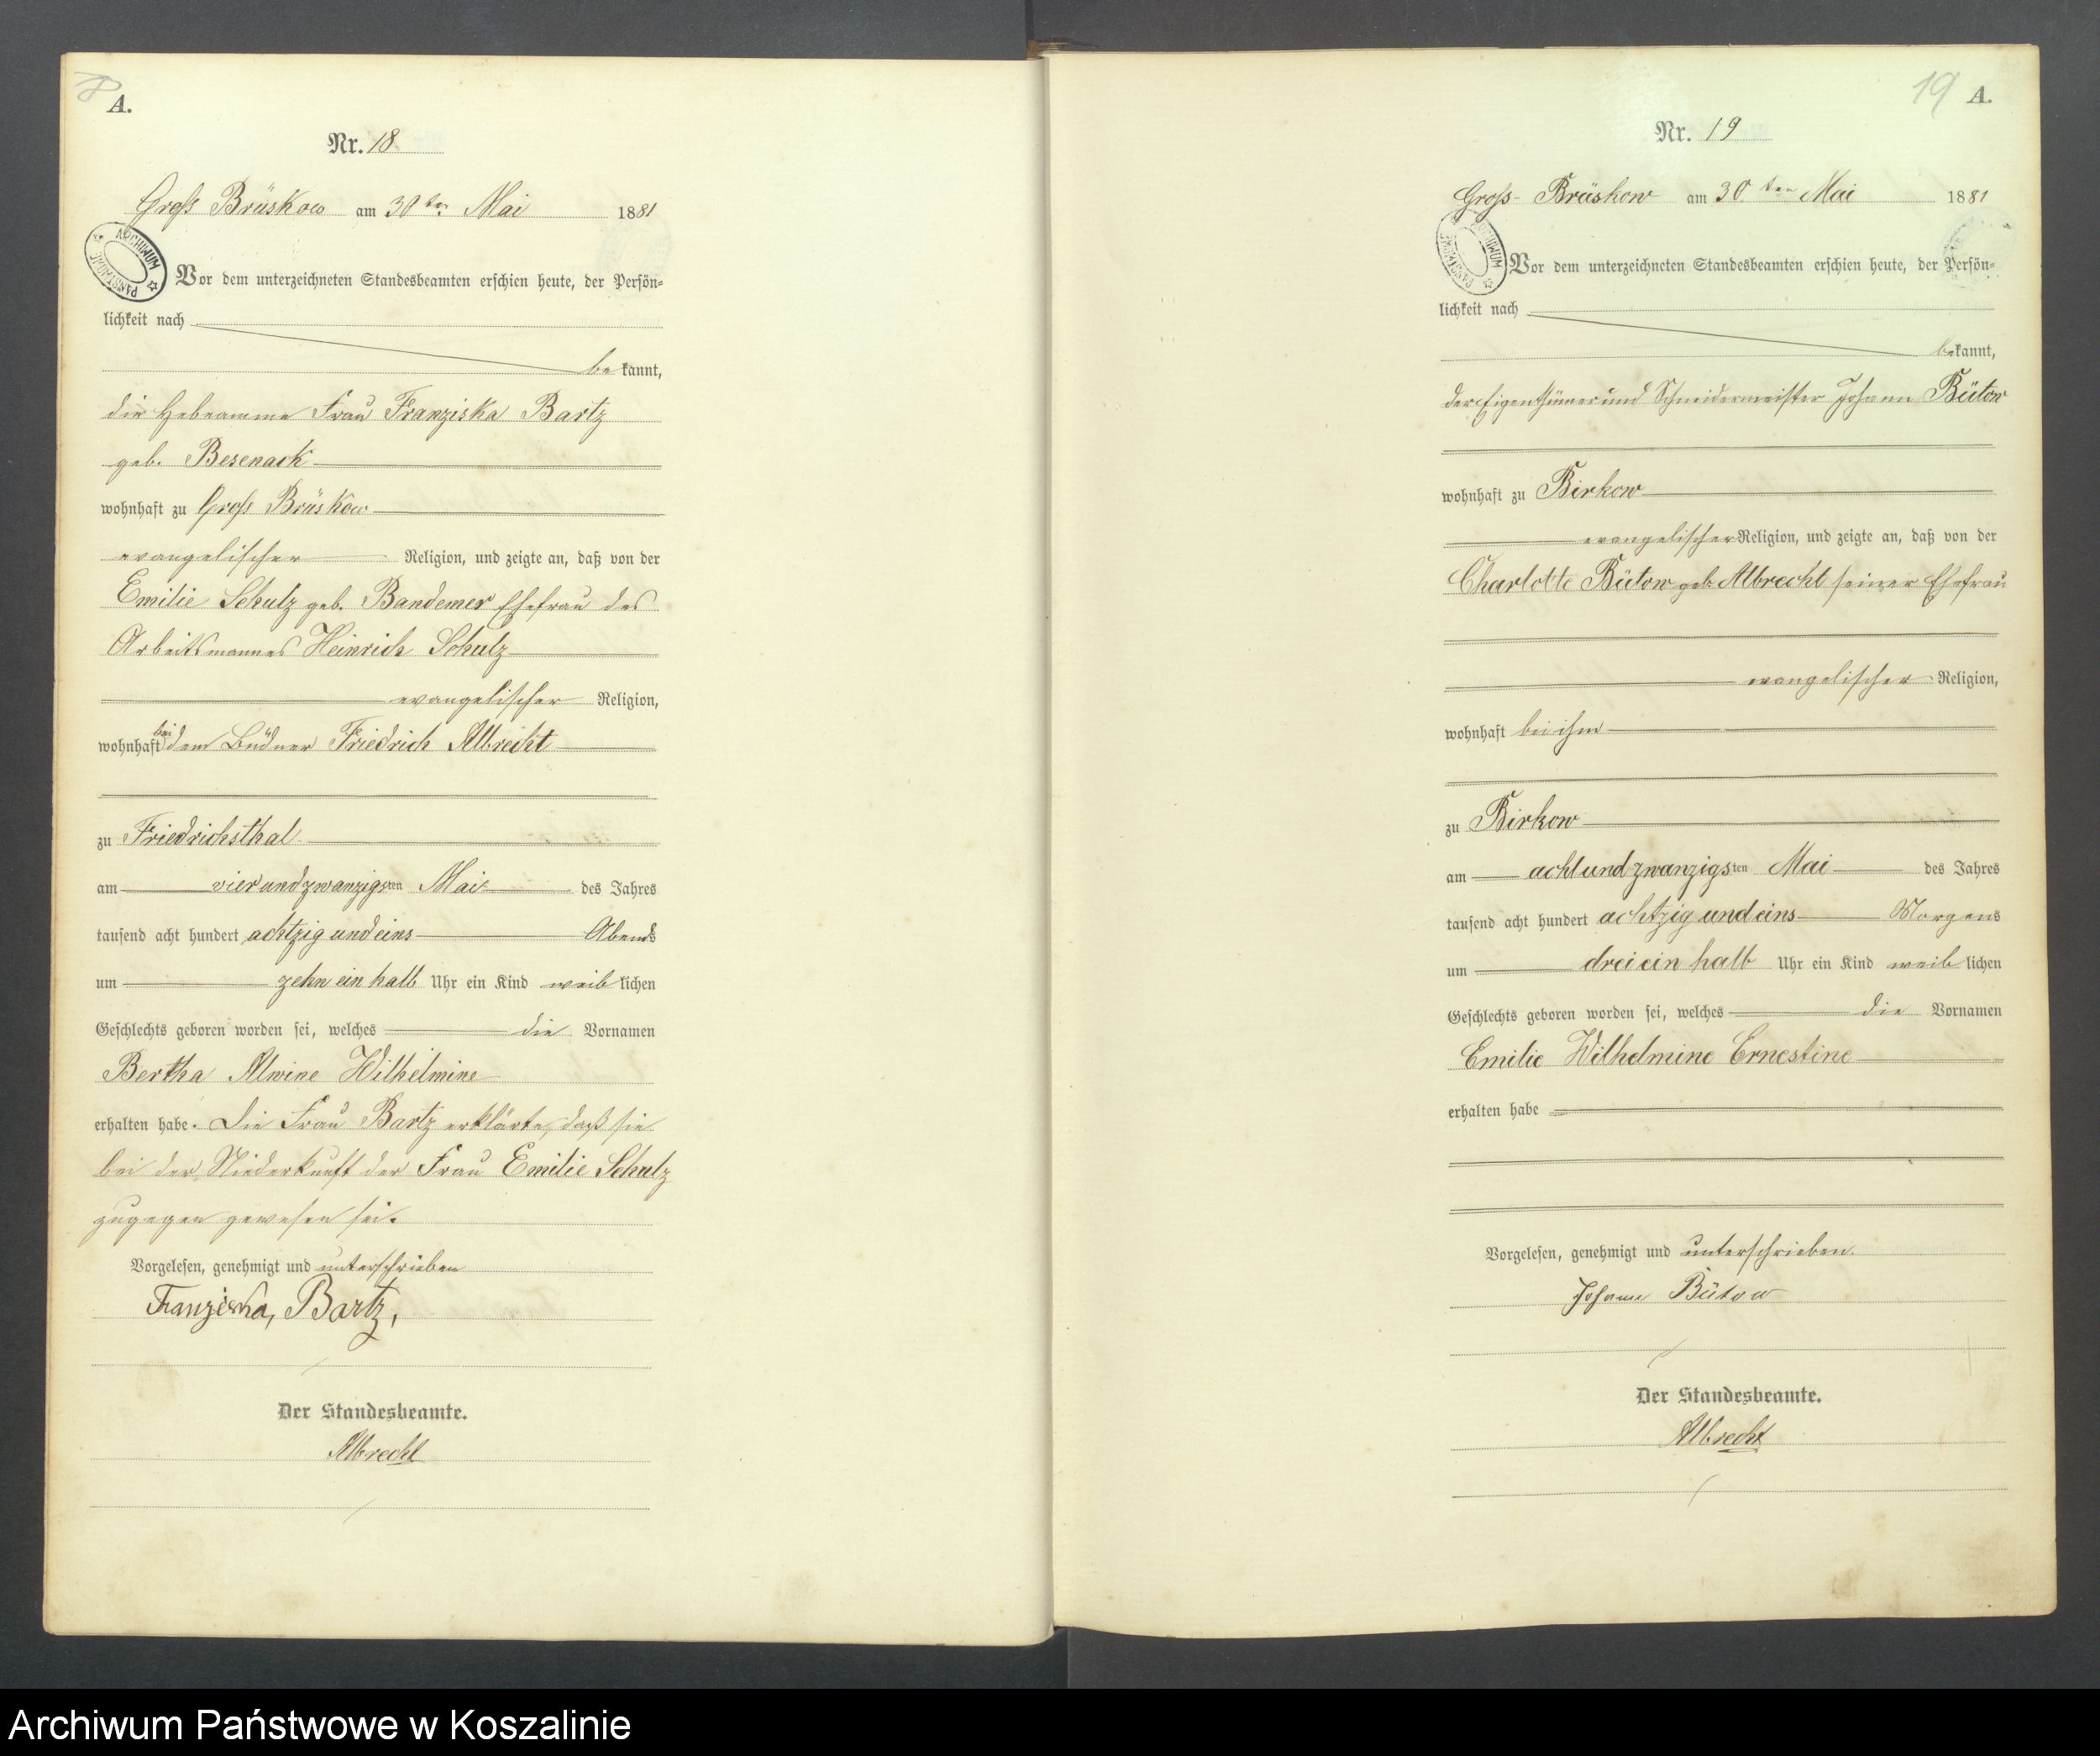 A.
Nr. 18
Groß Brüskow am 30ten Mai 1881
ARCHIWUM PAŃSTWOWE
Vor dem unterzeichneten Standesbeamten erschien heute, der Persön=
lichkeit nach
bekannt,
die Hebeamme Frau Franziska Bartz
geb. Besenack
wohnhaft zu Groß Brüskow
evangelischer Religion, und zeigte an, daß von der
Emilie Schulz geb. Bandemer Ehefrau des
Arbeitsmannes Heinrich Schulz
evangelischer Religion,
wohnhaft bei dem Büdner Friedrich Albrecht
zu Friedrichsthal
am vierundzwanzigsten Mai des Jahres
tausend acht hundert achtzig und eins Abends
um zehn ein halb Uhr ein Kind weiblichen
Geschlechts geboren worden sei, welches die Vornamen
Bertha Alwine Wilhelmine
erhalten habe. Die Frau Bartz erklärte, daß sie
bei der Niederkunft der Frau Emilie Schulz
zugegen gewesen sei.
Vorgelesen, genehmigt und unterschrieben
Franziska, Bartz,
Der Standesbeamte.
Albrecht
19 A.
Nr. 19
Groß-Brüskow am 30ten Mai 1881
ARCHIWUM PAŃSTWOWE
Vor dem unterzeichneten Standesbeamten erschien heute, der Persön=
lichkeit nach
bekannt,
der Eigenthümer und Schneidermeister Johann Bütow
wohnhaft zu Birkow
evangelischer Religion, und zeigte an, daß von der
Charlotte Bütow geb. Albrecht seiner Ehefrau
evangelischer Religion,
wohnhaft bei ihm
zu Birkow
am achtundzwanzigsten Mai des Jahres
tausend acht hundert achtzig und eins Morgens
um drei ein halb Uhr ein Kind weiblichen
Geschlechts geboren worden sei, welches die Vornamen
Emilie Wilhelmine Ernestine
erhalten habe
Vorgelesen, genehmigt und unterschrieben.
Johann Bütow
Der Standesbeamte.
Albrecht
Archiwum Państwowe w Koszalinie